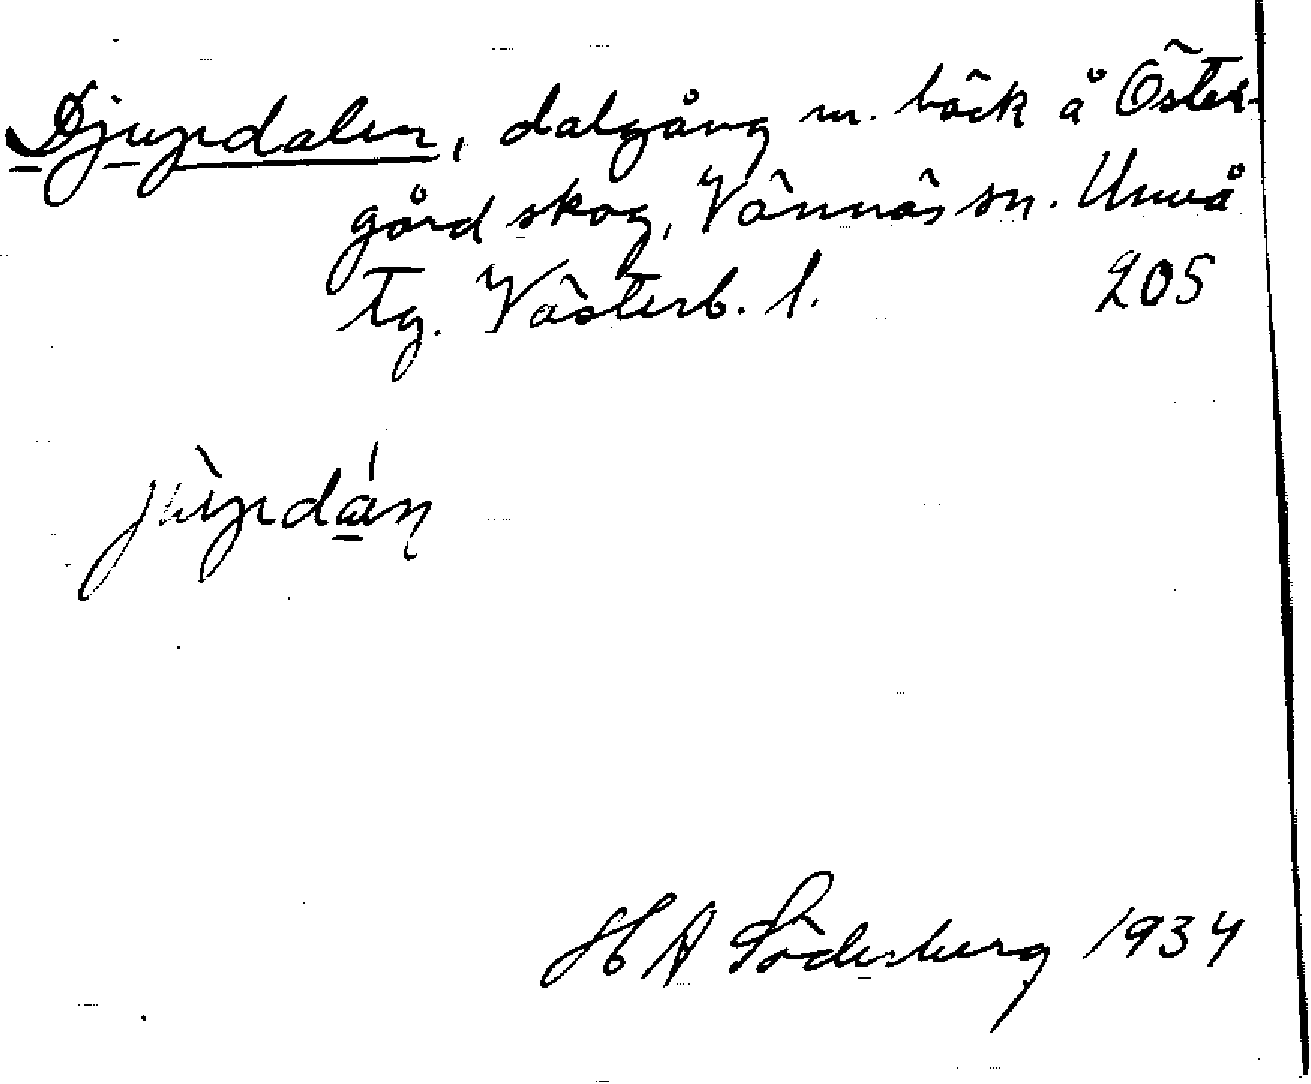 Djupdalen, dalgång m. bäck å Öster-
gård skog, Vännäs sn. Umeå
tg. Västerb. l. 205
jùpdán
H A Söderberg 1934